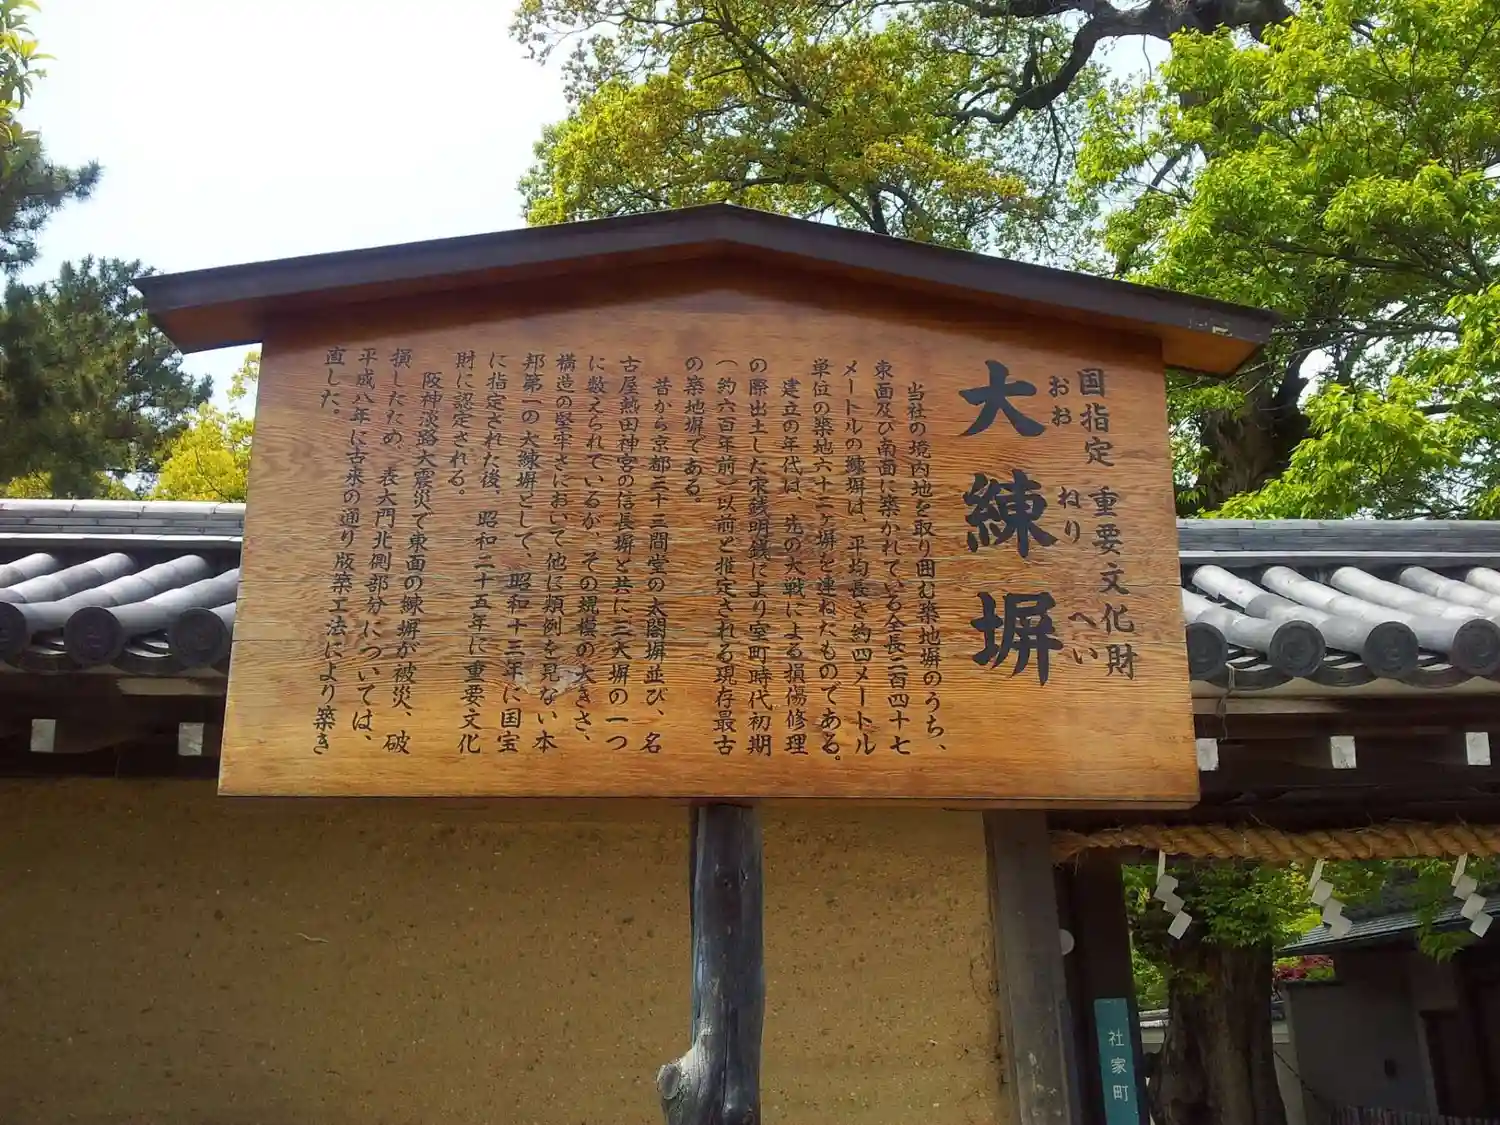 国指定 重要文化財
おお ねり へい
大練塀
当社の境内地を取り囲む築地塀のうち、
東面及び南面に築かれている全長二百四十七
メートルの練塀は、平均長さ約四メートル
単位の築地六十二ヶ塀を連ねたものである。
建立の年代は、先の大戦による損傷修理
の際出土した宋銭明銭により室町時代初期
(約六百年前)以前と推定される現存最古
の築地塀である。
昔から京都三十三間堂の太閤塀並び、名
古屋熱田神宮の信長塀と共に三大塀の一つ
に数えられているが、その規模の大きさ、
構造の堅牢さにおいて他に類例を見ない本
邦第一の大練塀として、昭和十三年に国宝
に指定された後、昭和二十五年に重要文化
財に認定される。
阪神淡路大震災で東面の練塀が被災、破
損したため、表大門北側部分については、
平成八年に古来の通り版築工法により築き
直した。
社家町